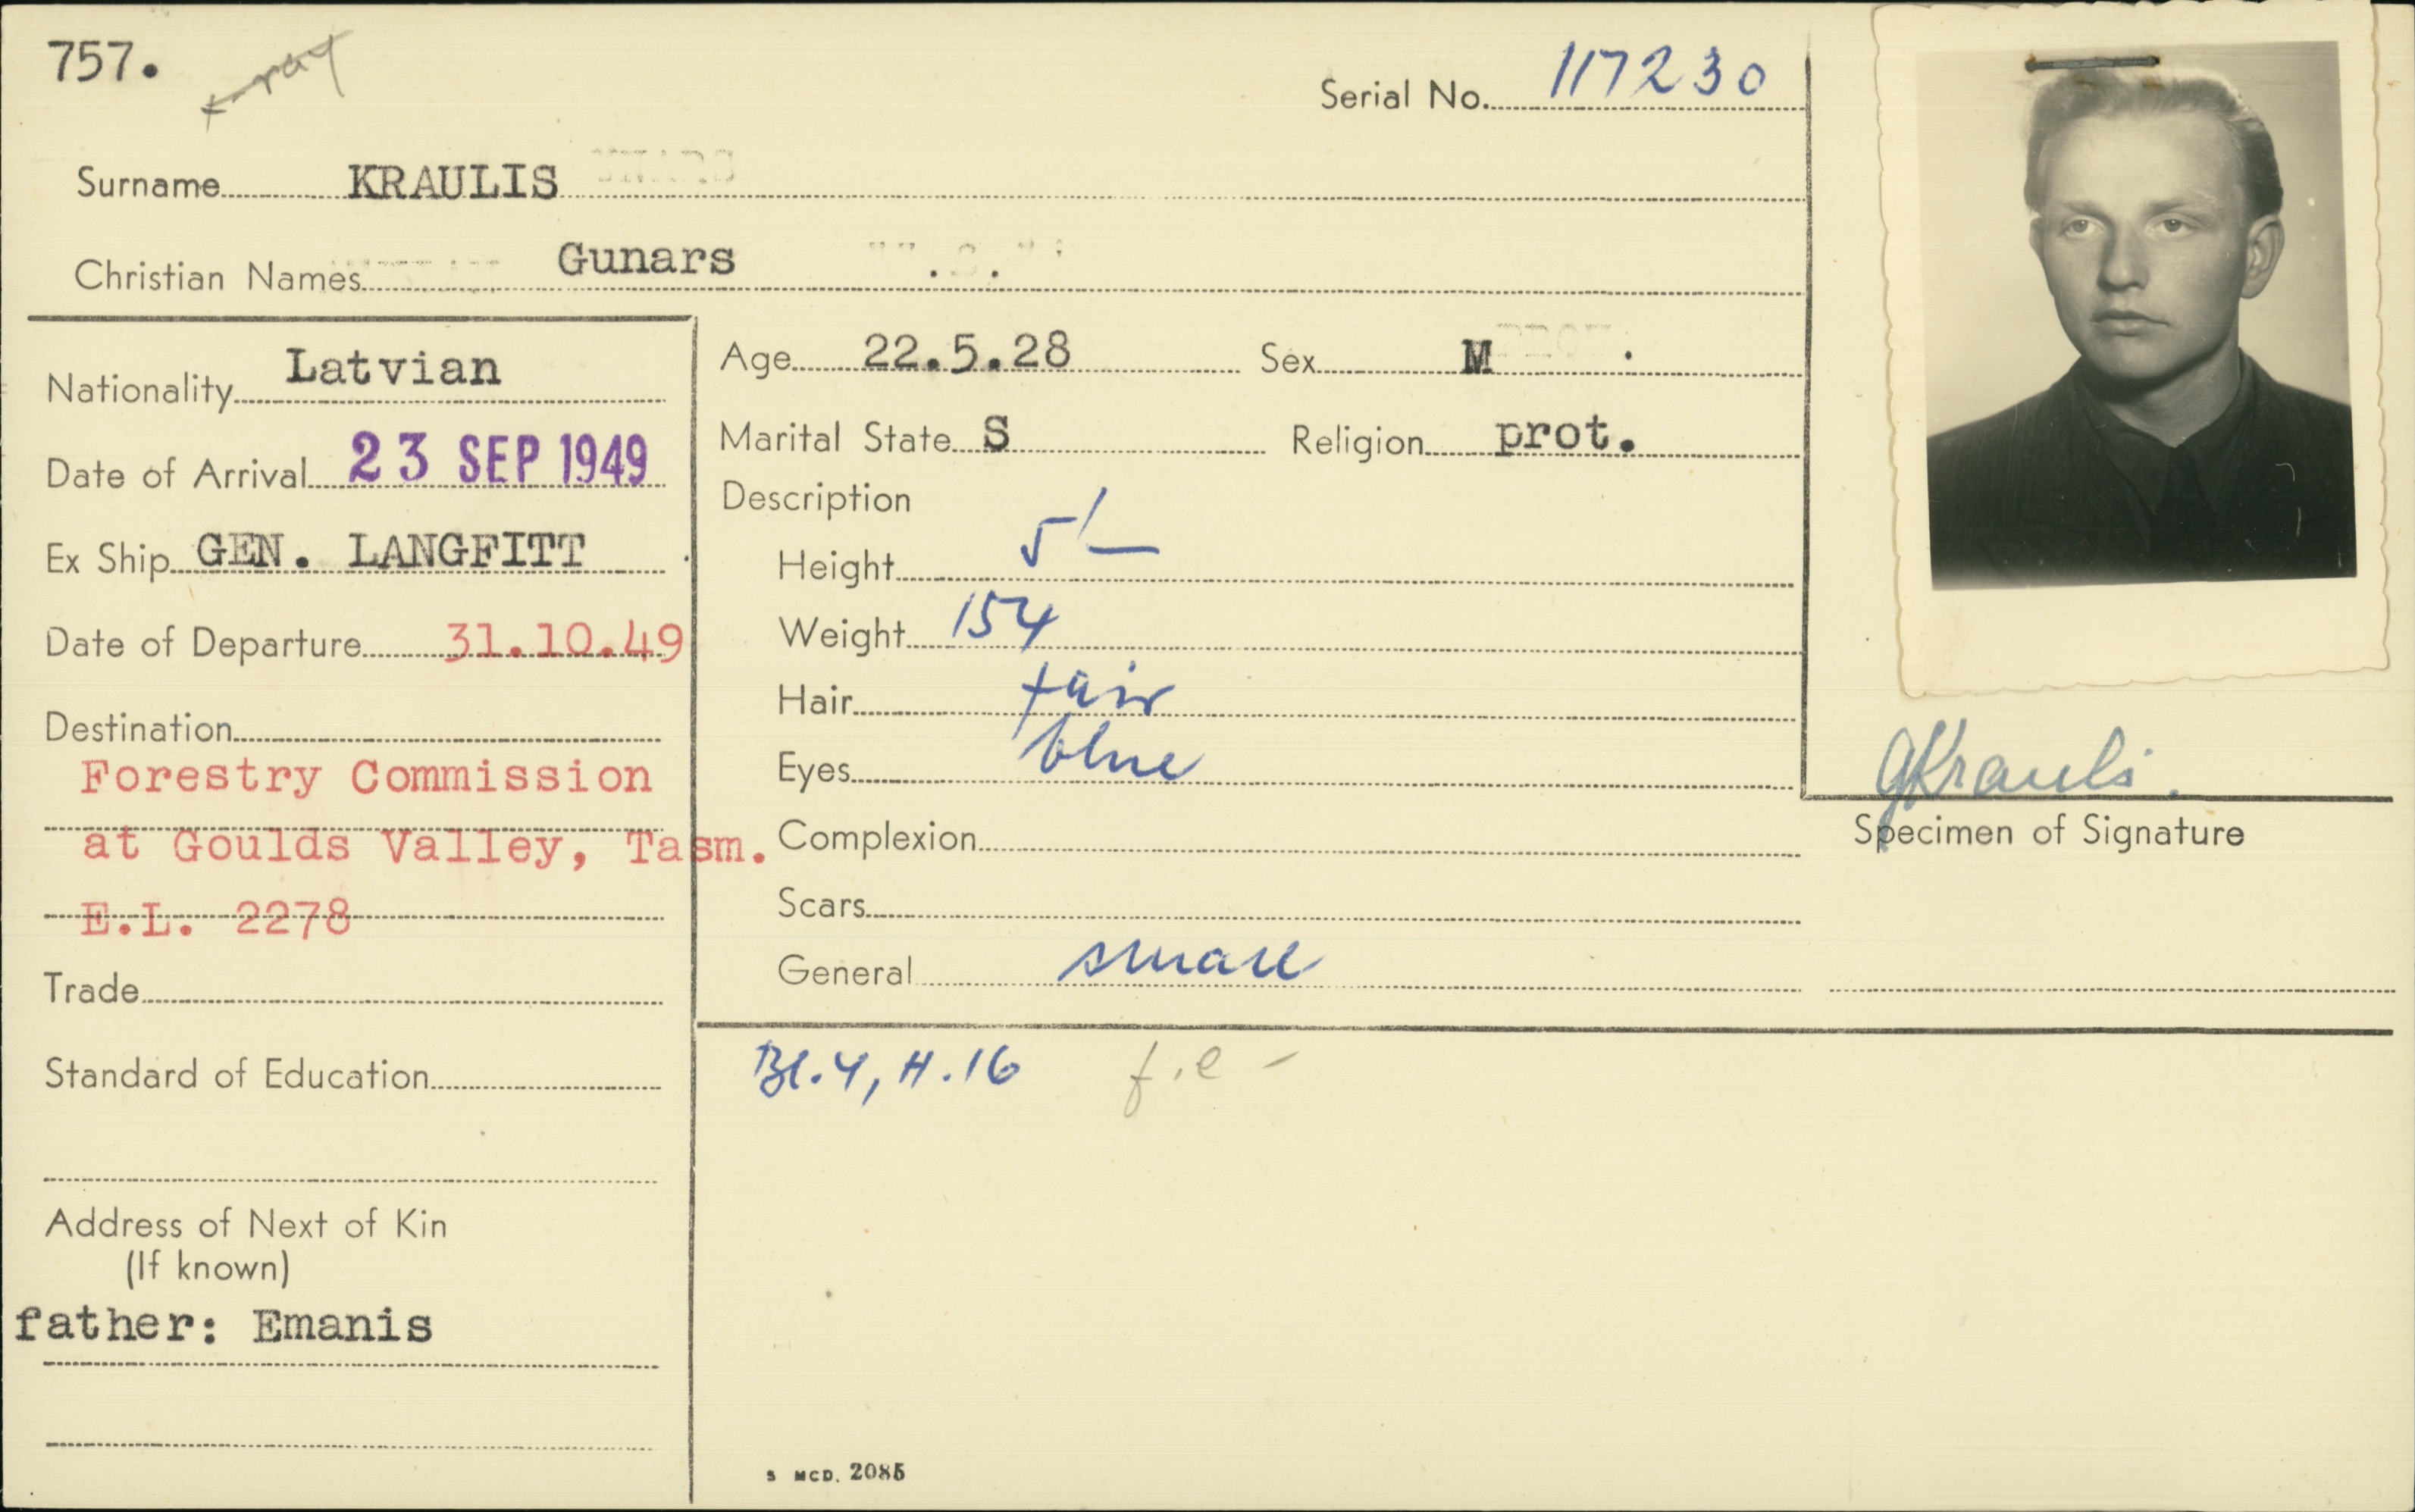 757.
x-ray
Serial No. 117230
Surname KRAULIS
Christian Names Gunars
Nationality Latvian
Date of Arrival 23 SEP 1949
Ex Ship GEN. LANGFITT
Date of Departure 31.10.49
Destination
Forestry Commission
at Goulds Valley, Tasm.
E.L. 2278
Trade
Standard of Education
Address of Next of Kin
(If known)
father: Emanis
Age 22.5.28 Sex M
Marital State S Religion prot.
Description
Height 5'/—
Weight 154
Hair fair
Eyes blue
Complexion
Scars
General small
GKraulis.
Specimen of Signature
Bl.4, H.16 f.e -
S MCD. 2085